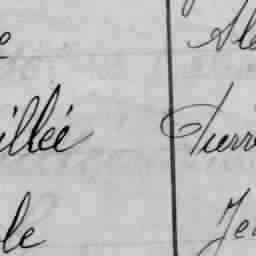 e Ale
illée Pierr
le Je